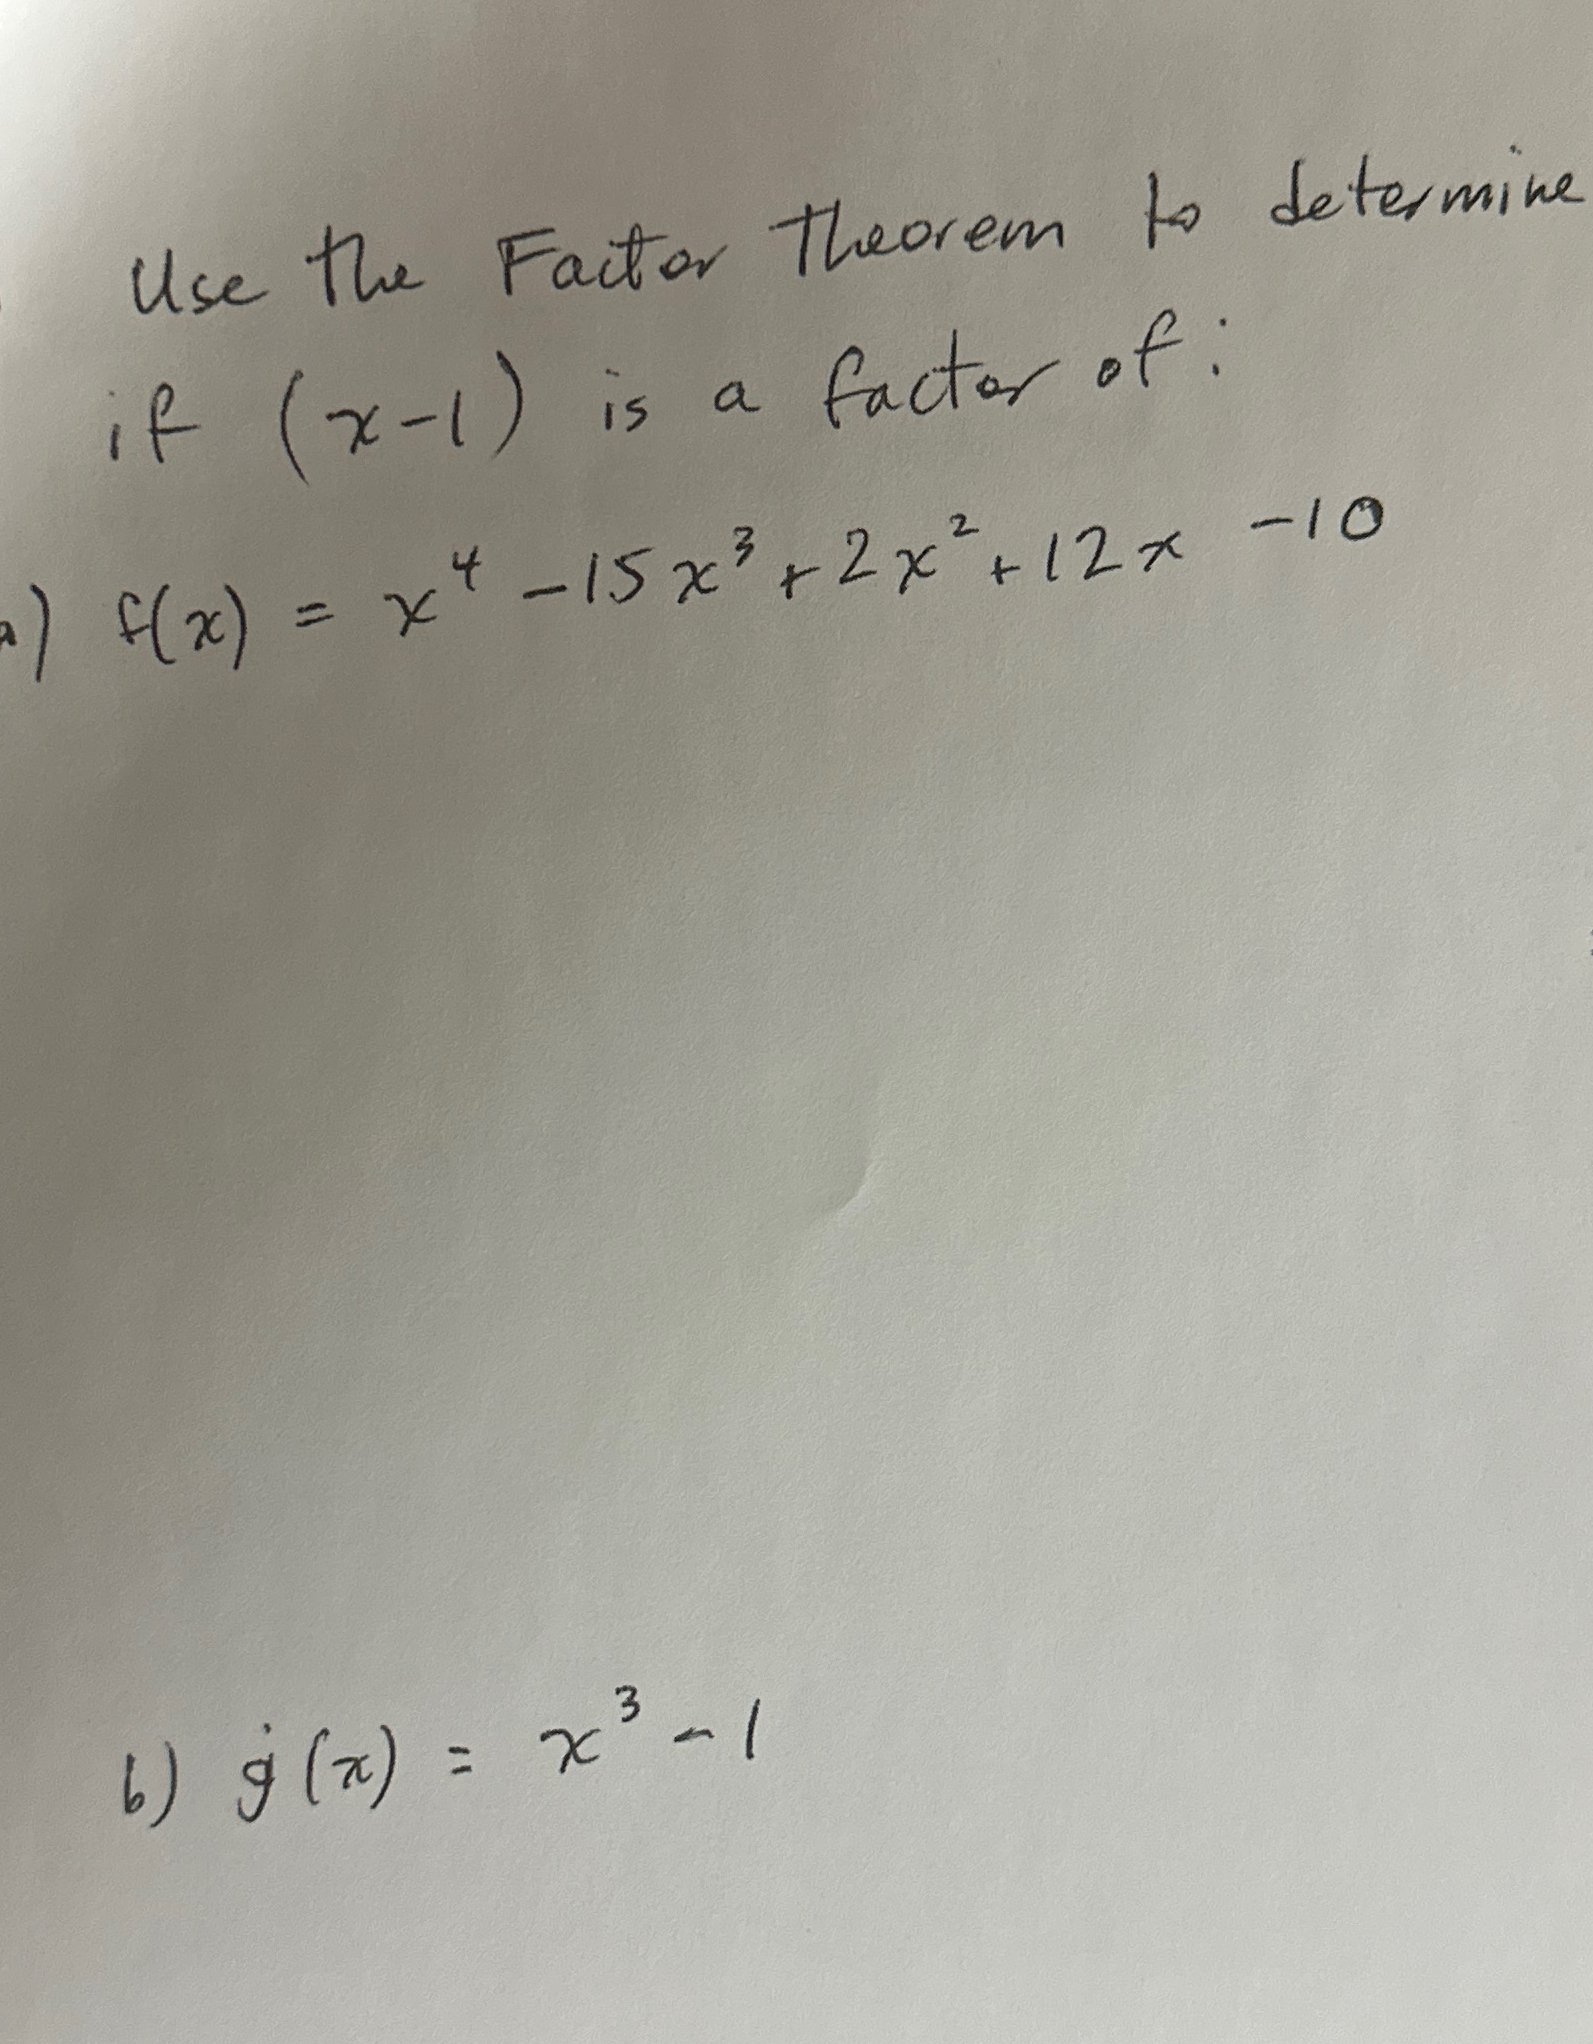 Use the Factor Theorem to determine
if (x-1) is a factor of:
a) f(x) = x⁴ - 15x³ + 2x² + 12x - 10
b) g(x) = x³ - 1